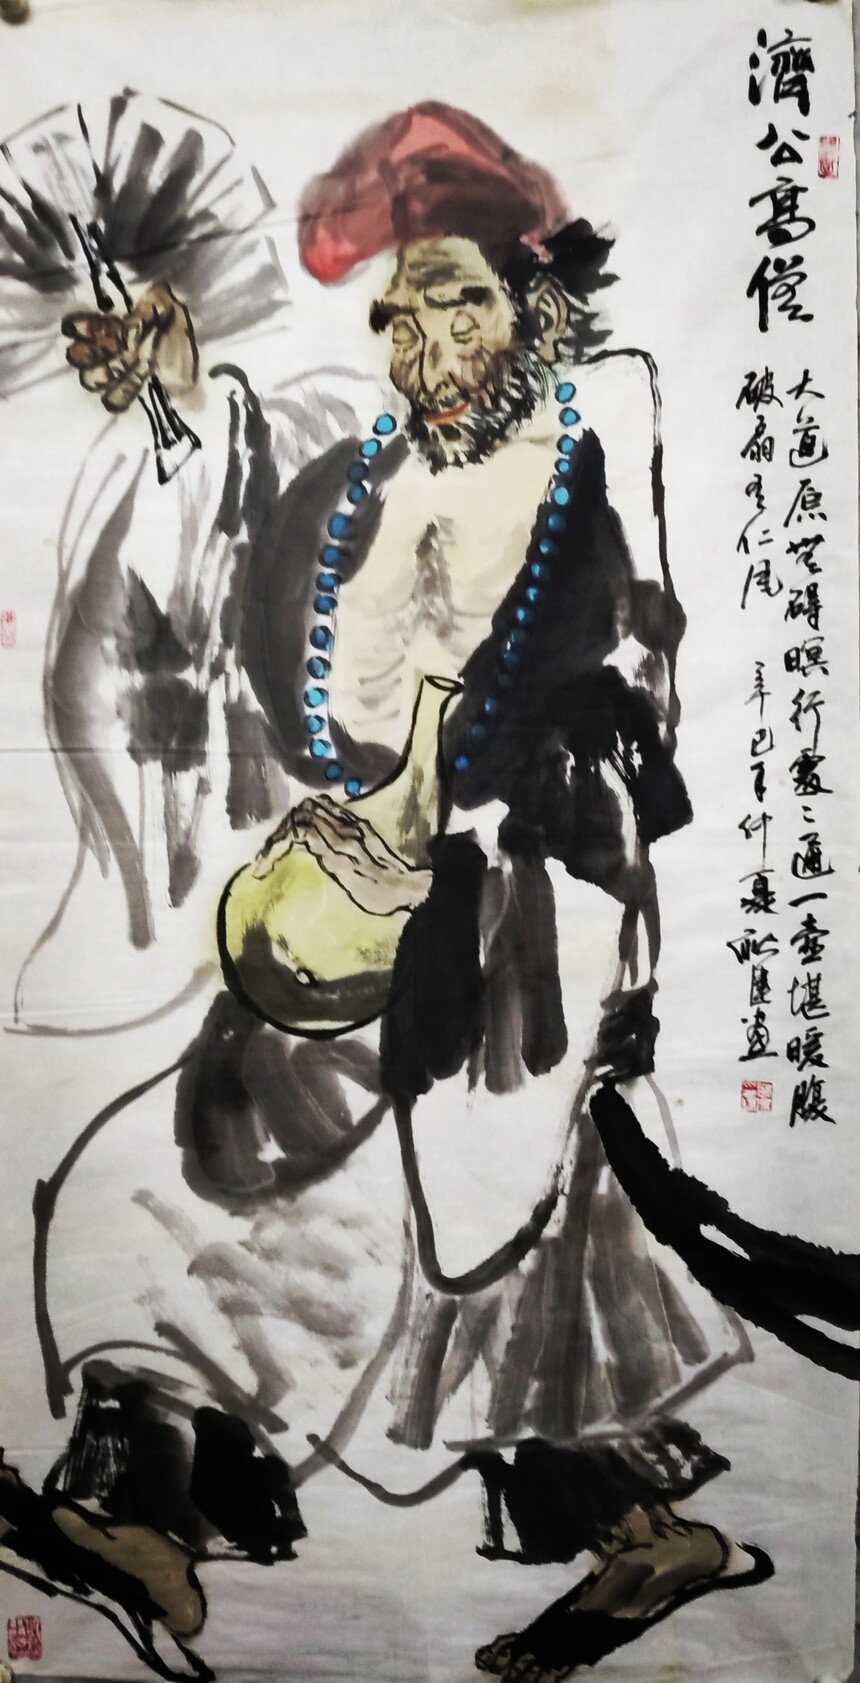 濟公高僧
大道原無碍暝行處〻通一壺堪暖腹
破扇有仁風 辛巳年仲夏 畫